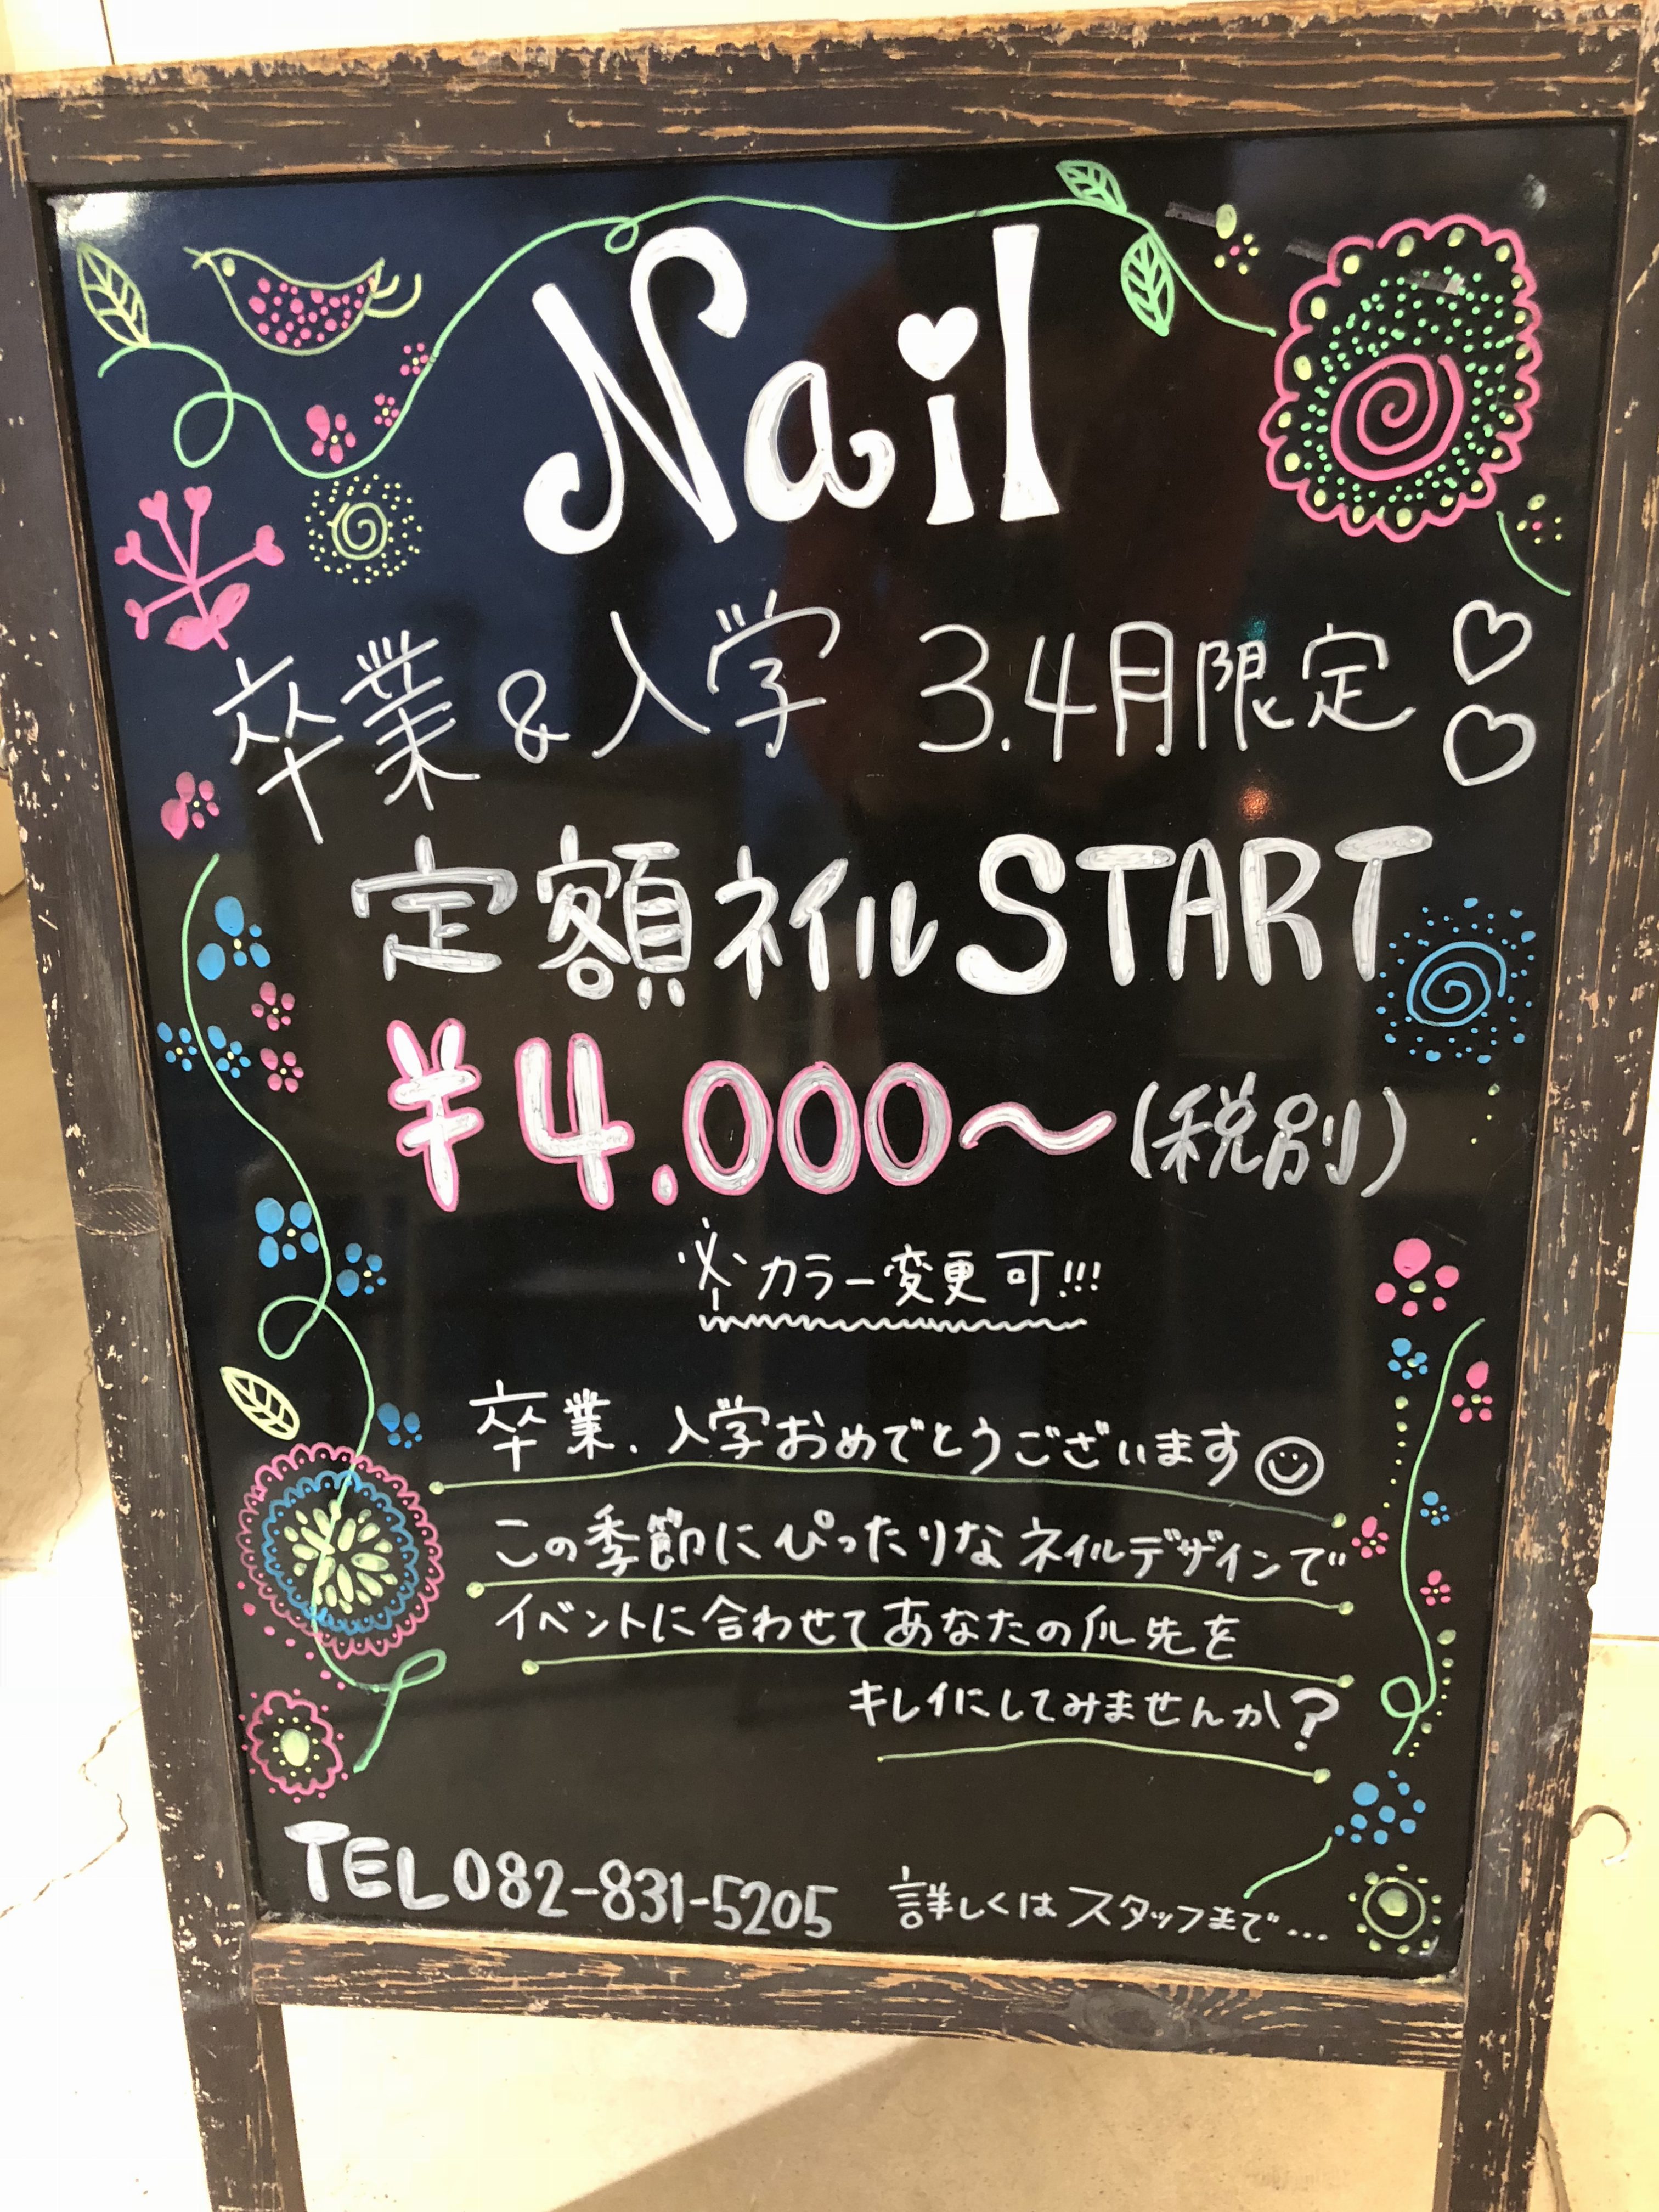 Nail
卒業&入学 3.4月限定♡♡
定額ネイルSTART
¥4.000〜(税別)
※カラー変更可!!!
卒業、入学おめでとうございます☺
この季節にぴったりなネイルデザインで
イベントに合わせてあなたの爪先を
キレイにしてみませんか?
TEL082-831-5205 詳しくはスタッフまで...